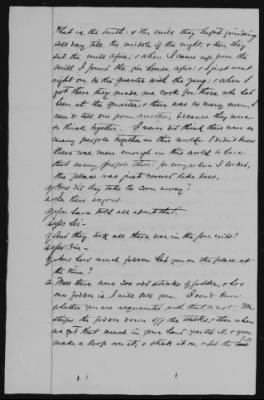 That is the truth; & the mill they kept grinding
all day till the middle of the night & then they
set the mill afire; & when I came up from the
mill I found the gin house afire; & I just went
right on to the quarter with the gang; & when I
got there they made me cook for those who had
been at the quarter; & there was so many men, I
can't tell one from another, because they were
so thick together. I never did think there was so
many people together in this world. I didn't know
there was men enough in this world to have
that many people there; for everywhere I looked,
the place was just covered like bees.
Q How did they take the corn away?
A In there wagons
Q You have told all about that.
A Yes Sir—
Q And they took all there was in the four cribs?
A Yes Sir—
Q And how much fodder had you on the place at
the time?
A Well there were 200 odd stacks of fodder, & how
our fodder is I will tell you. I don't know
whether you are acquainted with that or not. We
strips the fodder down off the stalks, & then when
we got that much in your hand you tie it, & you
make a loop on it, & stick it on, & let the